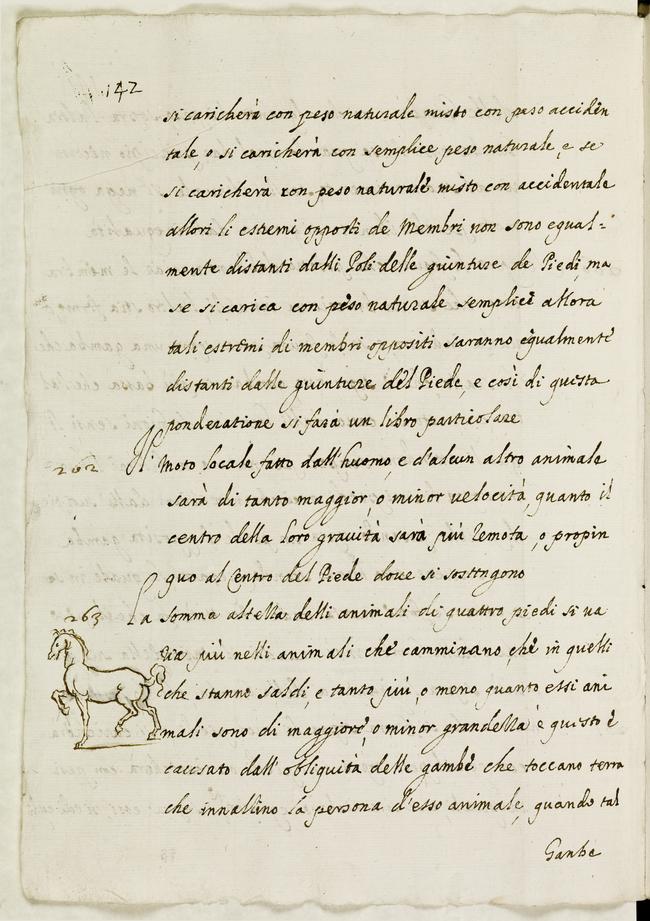 142
si caricherà con peso naturale misto con peso acciden
tale, o si caricherà con semplice peso naturale, e se
si caricherà con peso naturale misto con accidentale
allori li estremi opposti de Membri non sono equal=
mente distanti dalli Poli delle giunture de Piedi, ma
se si carica con peso naturale semplice allora
tali estremi di membri oppositi saranno egualmente
distanti dalle giunture del Piede, e così di questa
ponderatione si farà un libro particolare
262 Il Moto locale fatto dall'huomo, e d'alcun altro animale
sarà di tanto maggior, o minor velocità, quanto il
centro della loro gravità sarà più remota, o propin
quo al Centro del Piede dove si sostengono
263 La somma altezza delli animali di quattro piedi si va
ria più nelli animali che camminano, che in quelli
che stanno saldi, e tanto più, o meno, quanto essi ani
mali sono di maggiore, o minor grandezza e questo è
causato dall'obliquità delle gambe che toccano terra
che innalzino la persona d'esso animale, quando tal
Gambe